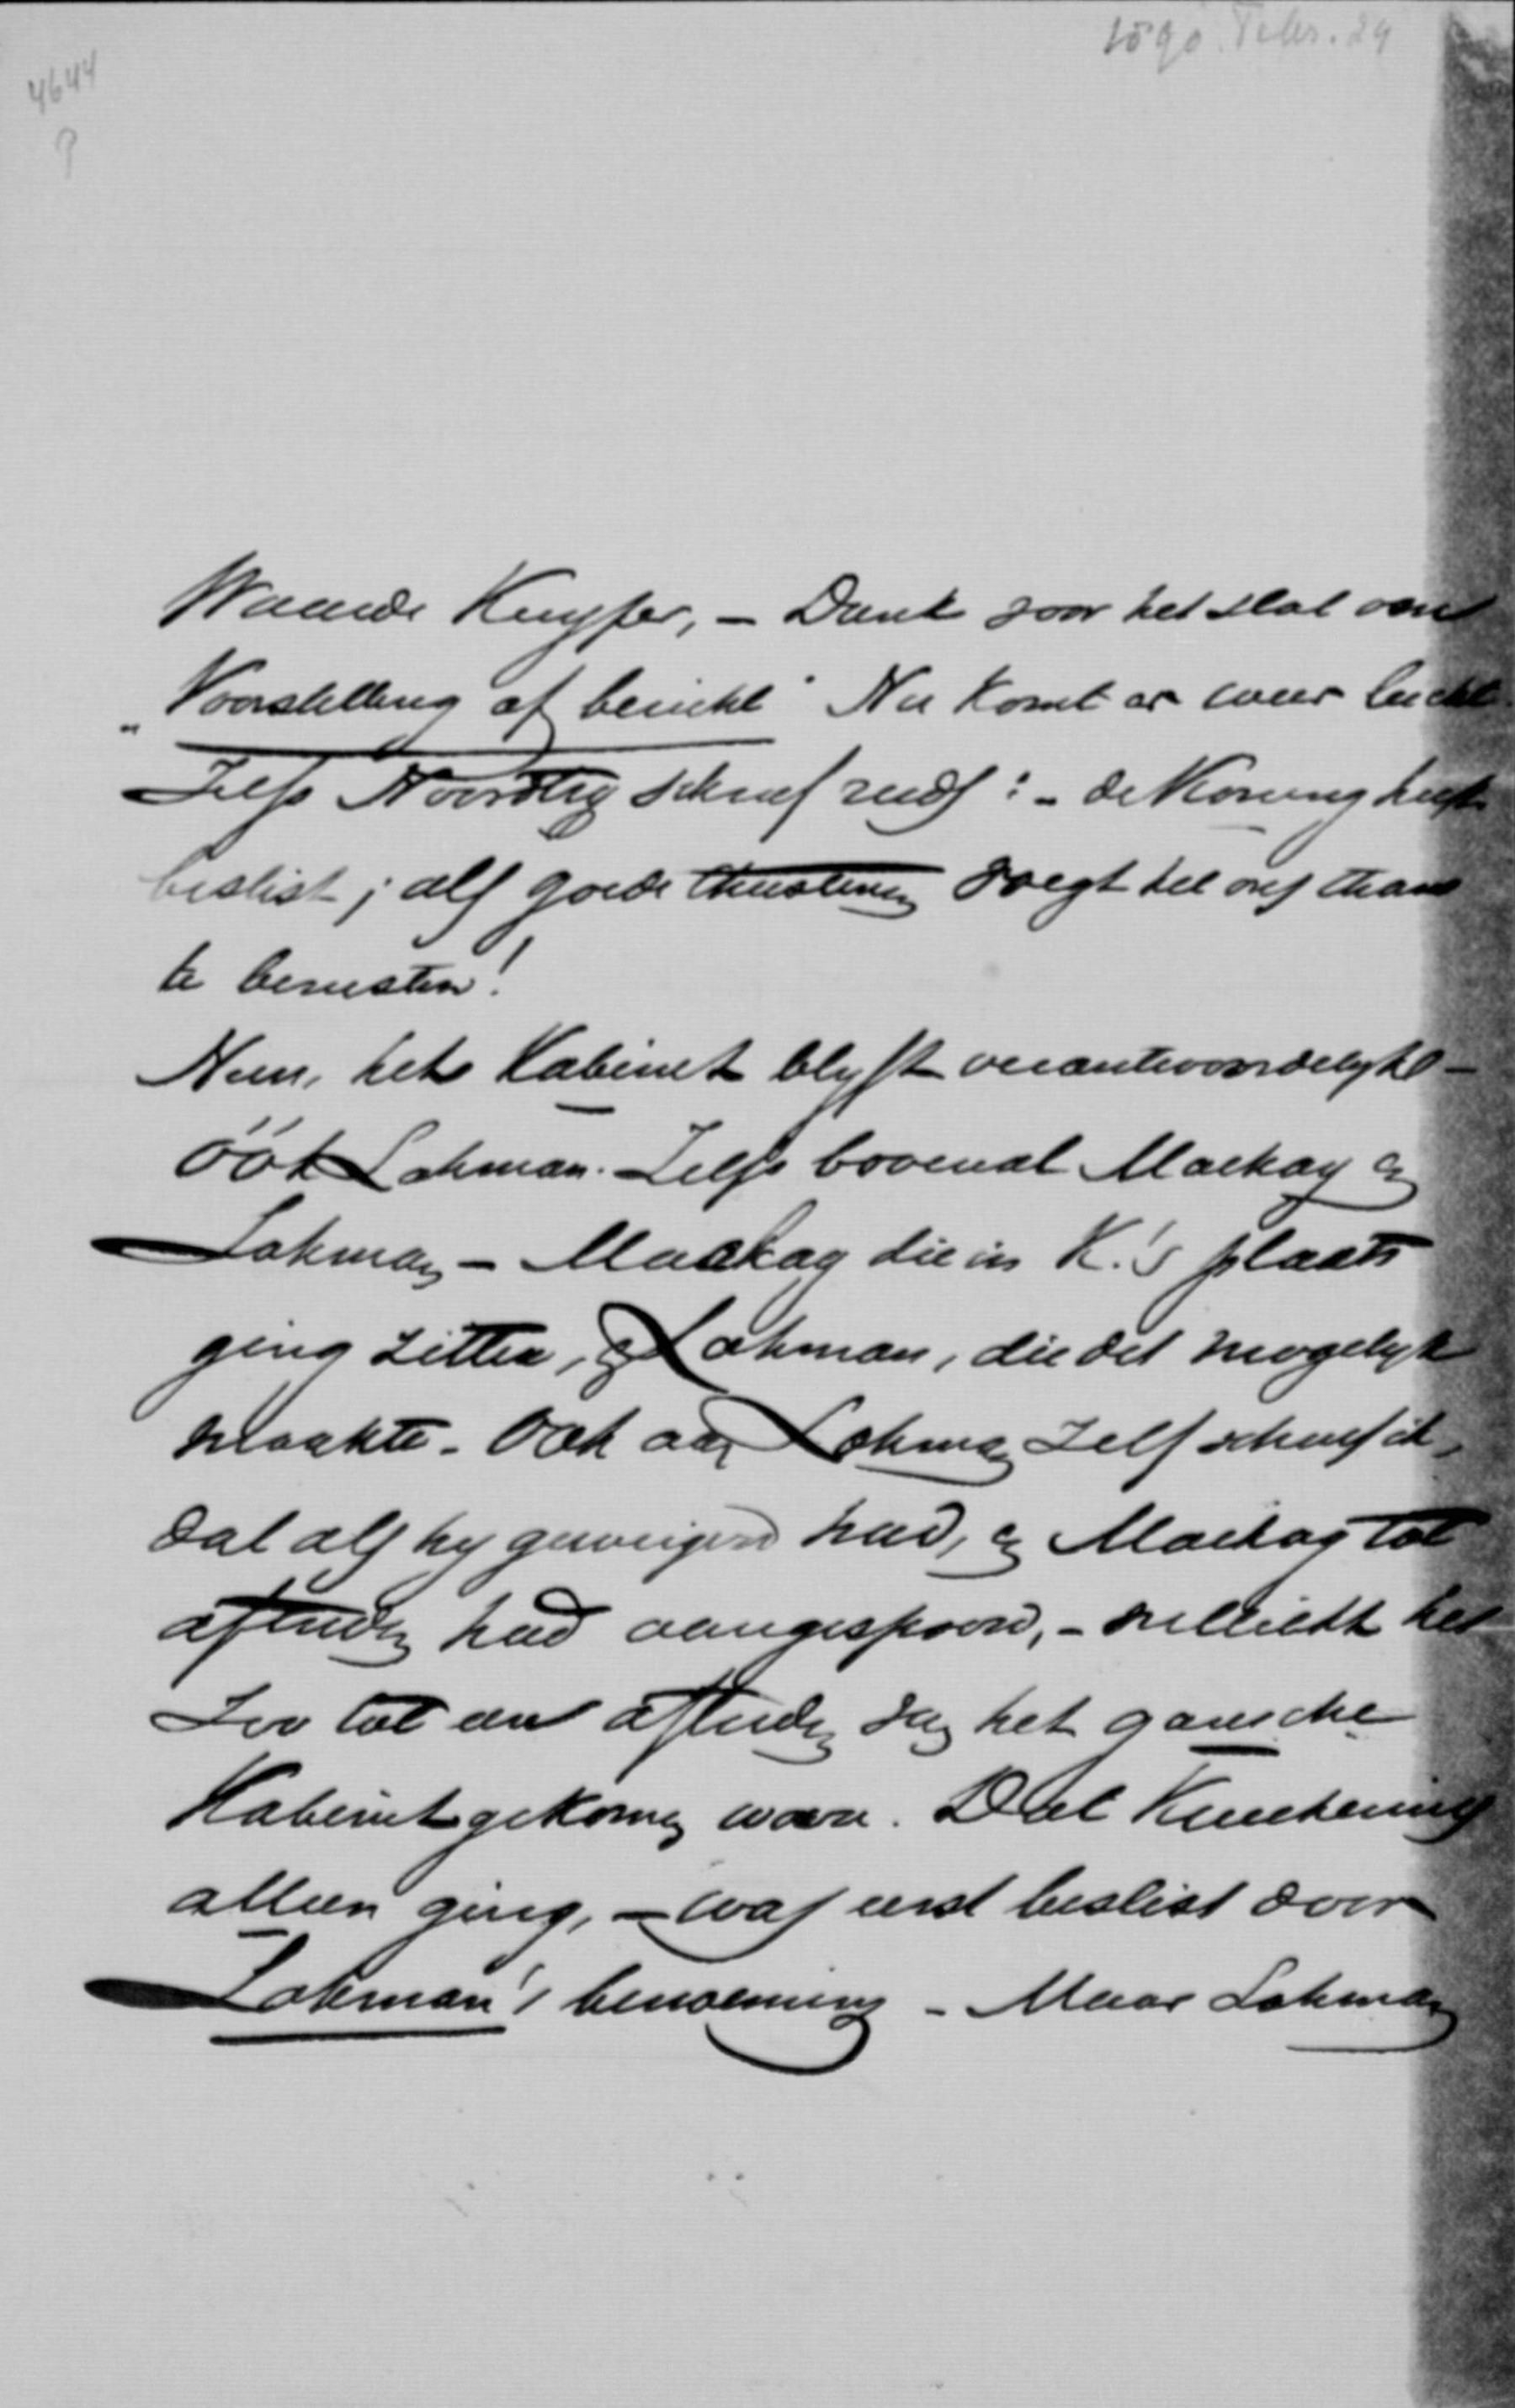 1890. Febr. 24
4644
Waarde Kuyper, – Dank voor het slot van
"Voorstelling of bericht" Nu komt er weer licht.
Zelfs Noordtzij schreef reeds: – de Koning heeft
beslist; als goede christenen voegt het ons thans
te berusten!
Neen, het Kabinet blyft verantwoordelyk –
óók Lohman. Zelfs bovenal Mackay en
Lohman – Mackay die in K.'s plaats
ging zitten, en Lohman, die dit mogelyk
maakte. Ook aan Lohman zelf schreef ik,
dat als hy geweigerd had, en Mackay tot
aftreden had aangespoord, – wellicht het
zoo tot een aftreden van het gansche
Kabinet gekomen ware. Dat Keuchenius
alleen ging, – was eerst beslist door
Lohman's benoeming – Maar Lohman